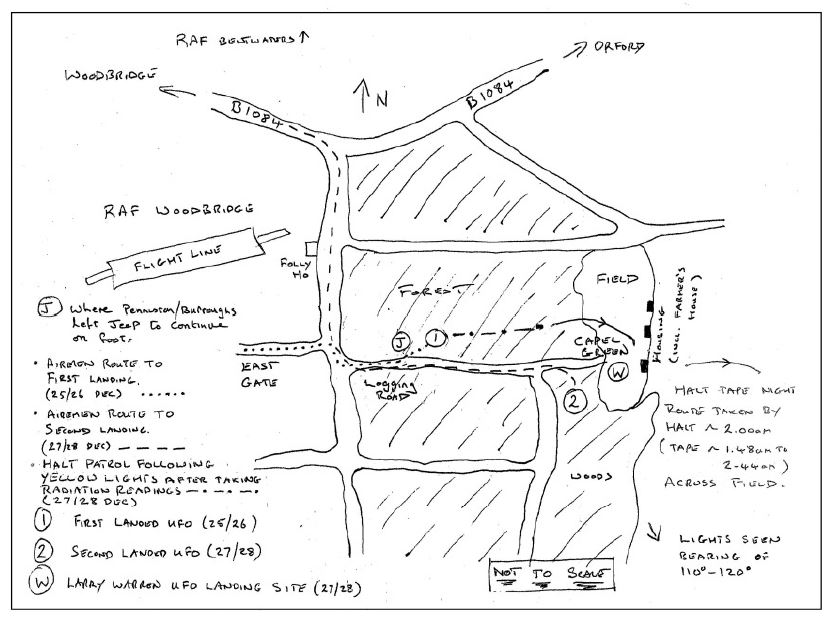 RAF BENTWATERS
ORFORD
WOODBRIDGE
N
B1084
B1084
RAF WOODBRIDGE
FLIGHT LINE
FOLLY
HO
FOREST
FIELD
HOUSING
(INCL. FARMER'S
HOUSE)
J Where Penniston/Burroughs
left Jeep to continue
on foot.
J
1
CAPEL
GREEN
W
EAST
GATE
Logging
ROAD
2
• AIRMEN ROUTE TO
FIRST LANDING.
(25/26 DEC)
• AIRMEN ROUTE TO
SECOND LANDING.
(27/28 DEC)
• HALT PATROL FOLLOWING
YELLOW LIGHTS AFTER TAKING
RADIATION READINGS
(27/28 DEC)
HALT TAPE NIGHT
ROUTE TAKEN BY
HALT ~ 2.00am
(TAPE ~ 1.48am TO
2-44am)
ACROSS FIELD.
WOODS
1 FIRST LANDED UFO (25/26)
2 SECOND LANDED UFO (27/28)
W LARRY WARREN UFO LANDING SITE (27/28)
NOT TO SCALE
LIGHTS SEEN
BEARING OF
110°-120°